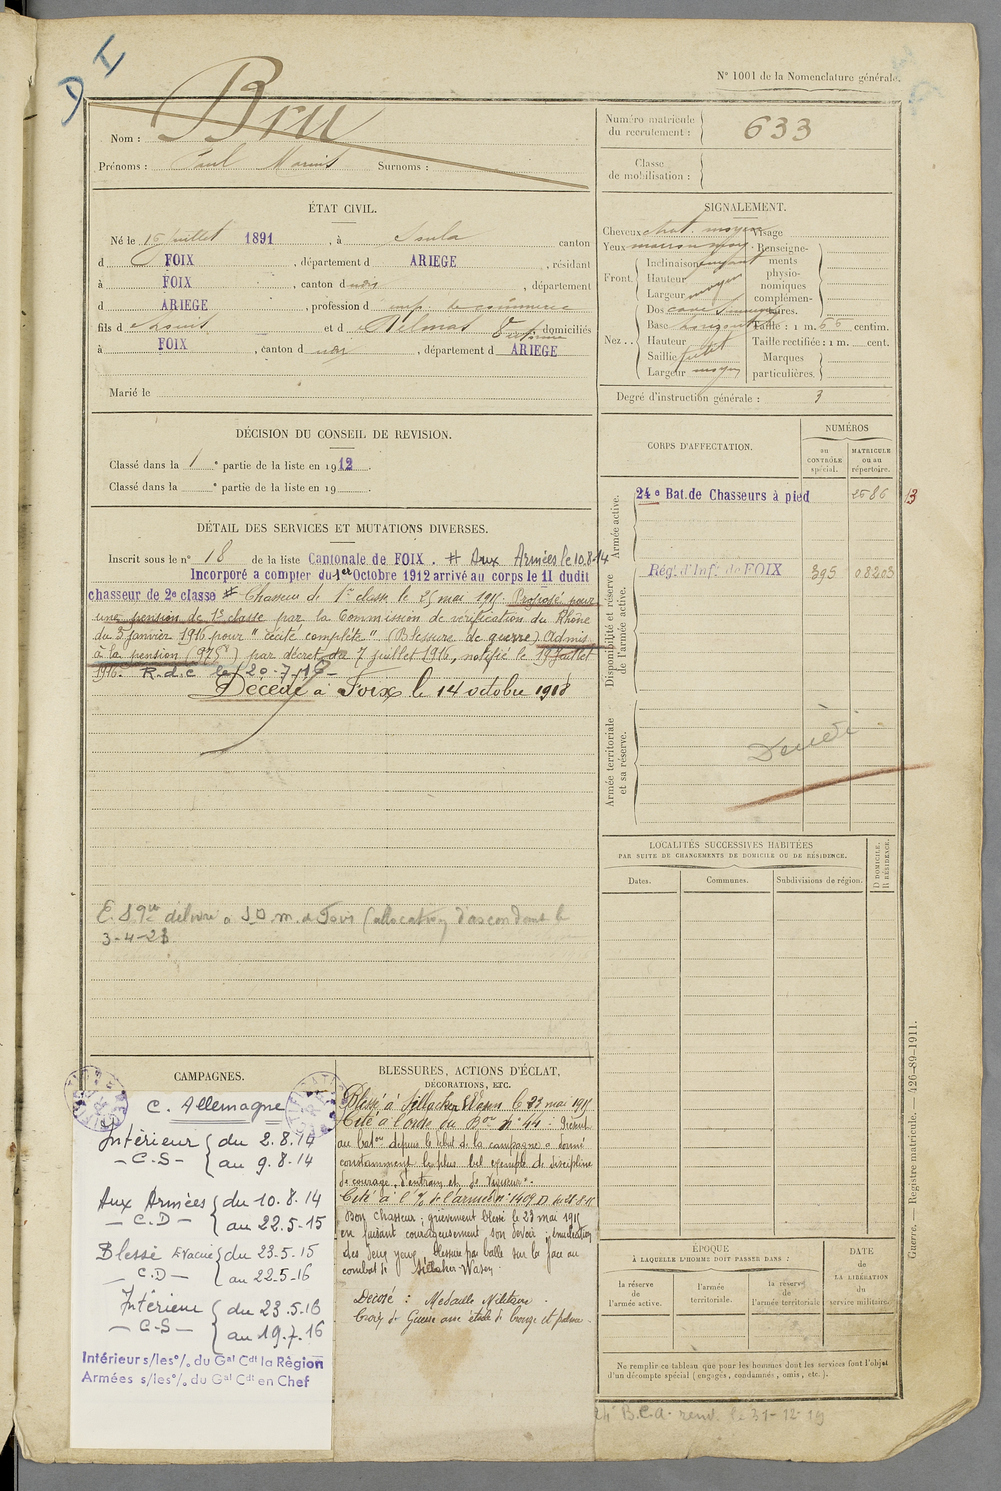 N° 1001 de la Nomenclature générale.
Nom : Bru
Prénoms : Paul Surnoms :
Numéro matricule du recrutement : 633
Classe de mobilisation :
ÉTAT CIVIL.
Né le 16 Juillet 1891, à canton
d FOIX, département d ARIEGE, résidant
à FOIX, canton d département
d ARIEGE, profession d emp. de commerce
fils d et d domiciliés
à FOIX, canton d département d ARIEGE
Marié le
SIGNALEMENT.
Cheveux chat. moyen Visage
Yeux marron moy. Renseigne-
Front. Inclinaison fuyant ments
Hauteur physio-
Largeur moyen nomiques
complémen-
Nez . . Dos cave taires.
Base horizont Taille : 1 m. 65 centim.
Hauteur Taille rectifiée : 1 m. cent.
Saillie petit Marques
Largeur moyen particulières.
Degré d'instruction générale : 3
DÉCISION DU CONSEIL DE REVISION.
Classé dans la 1 e partie de la liste en 1912.
Classé dans la e partie de la liste en 19
CORPS D'AFFECTATION.
NUMÉROS
au CONTRÔLE spécial.
MATRICULE ou au répertoire.
Armée active.
24e Bat.de Chasseurs à pied 2686 13
Disponibilité et réserve de l'armée active.
Rég. d'Inf. de FOIX 395 08203
Armée territoriale et sa réserve.
DÉTAIL DES SERVICES ET MUTATIONS DIVERSES.
Inscrit sous le n° 18 de la liste Cantonale de FOIX. # Aux Armées le 10.8.14
Incorporé a compter du 1er Octobre 1912 arrivé au corps le 11 dudit
chasseur de 2e classe # Chasseur de 1re classe le 25 mai 1915. Proposé pour
une pension de 1e classe par la Commission de vérification du Rhône
du 3 janvier 1916 pour " cécité complète " (Blessure de guerre) Admis
à la pension (975f) par décret du 7 juillet 1916, notifié le 19 juillet
1916. R.d.c. le 20-7-16
Décédé à Foix le 14 octobre 1918
délivré a S.D.M. de Foix (allocation d'ascendant le
3-4-23
LOCALITÉS SUCCESSIVES HABITÉES
PAR SUITE DE CHANGEMENTS DE DOMICILE OU DE RÉSIDENCE.
Dates. Communes. Subdivisions de région. D DOMICILE. R RÉSIDENCE.
CAMPAGNES.
C. Allemagne
Intérieur du 2.8.14
- C.S - au 9.8.14
Aux Armées du 10.8.14
- C.D - au 22.5-15
Blessé Evacué du 23-5.15
- C.D - au 22.5-16
Intérieur du 23.5.16
- C-S - au 19.7.16
Intérieur s/les °/. du Gal Cdt la Région
Armées s/les °/. du Gal Cdt en Chef
BLESSURES, ACTIONS D'ÉCLAT,
DÉCORATIONS, ETC.
Blessé à Sillacker Wasen le 23 mai 1915
Cité à l'ordre du Bon n° 44 : Présent
au baton depuis le début de la campagne a donné
constamment le plus bel exemple de discipline
de courage, d'entrain et de vigueur".
Cité à l'° de l'armée n° 1409 D
Bon chasseur ; grièvement blessé le 23 mai 1915
en faisant courageusement son devoir ; énucléation
des deux yeux, blessure par balle sur la face au
combat de Sillaker-Wasen
Décoré : Médaille Militaire.
Croix de Guerre avec étoile de bronze et palme.
ÉPOQUE
À LAQUELLE L'HOMME DOIT PASSER DANS :
la réserve de l'armée active.
l'armée territoriale.
la réserve de l'armée territoriale
DATE de LA LIBÉRATION du service militaire.
Ne remplir ce tableau que pour les hommes dont les services font l'objet
d'un décompte spécial (engagés, condamnés, omis, etc.).
24e B.C.A. renv. le 31-12-19
Guerre. — Registre matricule. — 426-89-1911.